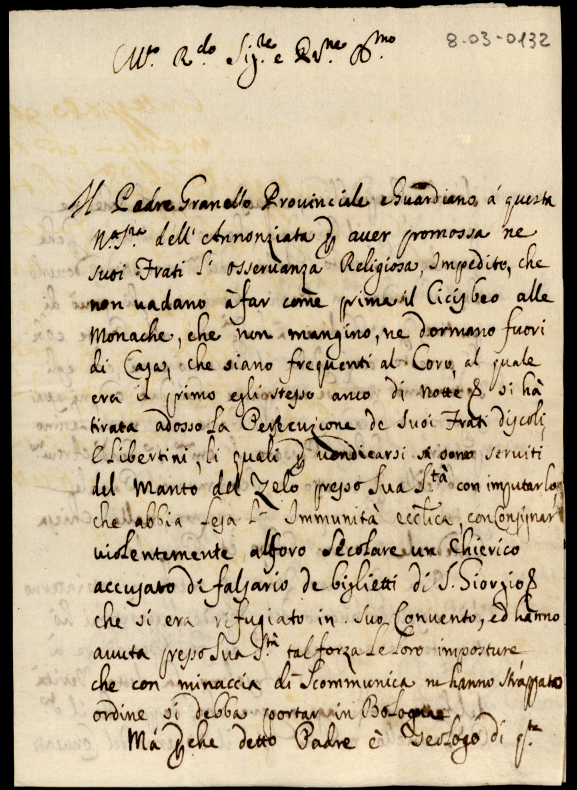 8-03-0132
M.to R.do Sig.re e P.ne
Il Padre Granello Provinciale e Guardiano á questa
N.a S.ra dell'Annonziata p aver promossa ne
suoi Frati l'osservanza Religiosa, Impedito, che
non vadano à far come prima il Cicisbeo alle
Monache, che non mangino, ne dormano fuori
di Casa, che siano frequenti al Coro, al quale
era il primo egli stesso anco di notte si hà
tirata adosso la Persecuzione de suoi Frati discoli,
e Libertini, li quali p vendicarsi si sono serviti
del Manto del Zelo presso Sua S.tà con imputarlo,
che abbia lesa l'Immunità eccl.tica, con consignar
violentemente al foro secolare un Chierico
accusato di falsario de biglietti di S. Giorgio
che si era rifugiato in suo Convento, ed hanno
avuta presso Sua S.tà tal forza le loro imposture
che con minaccia di Scommunica ne hanno strappato
ordine si debba portar in Bologna
Má p che detto Padre è Teologo di